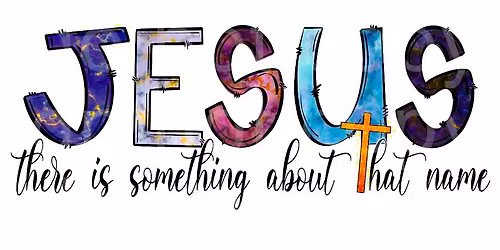 JESUS
there is something about that name